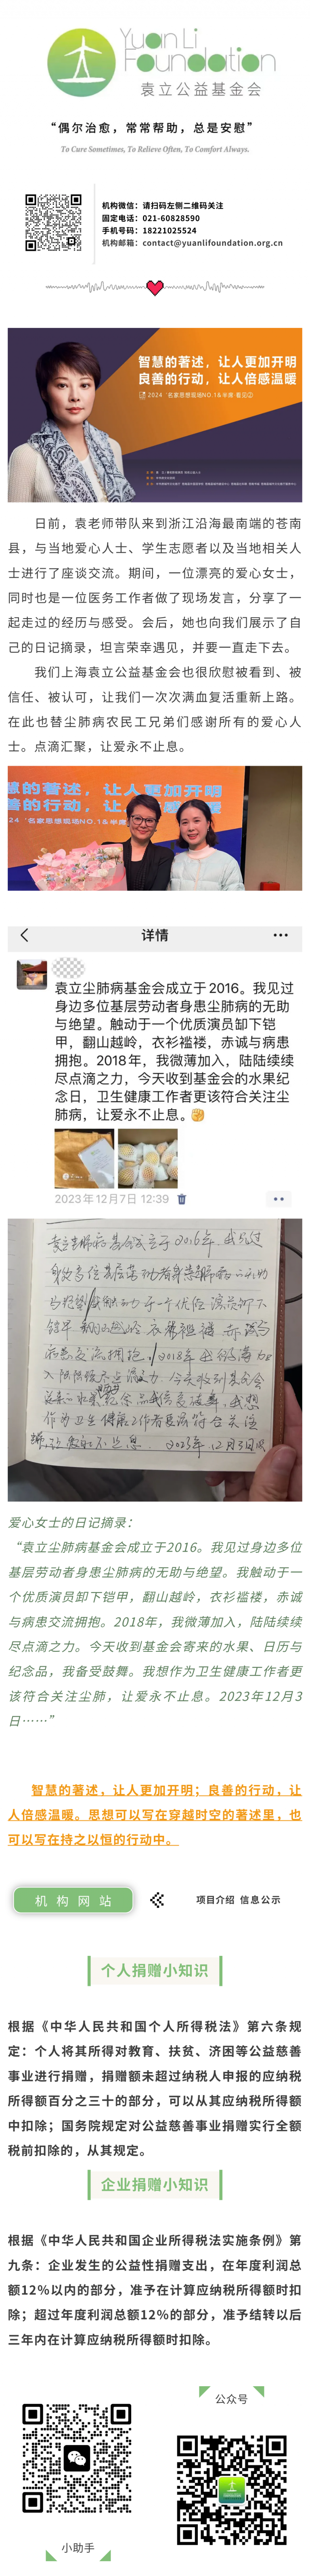 Yuan Li
Foundation
袁立公益基金会
“偶尔治愈，常常帮助，总是安慰”
To Cure Sometimes, To Relieve Often, To Comfort Always.
机构微信：请扫码左侧二维码关注
固定电话：021-60828590
手机号码：18221025524
机构邮箱：contact@yuanlifoundation.org.cn
智慧的著述，让人更加开明
良善的行动，让人倍感温暖
日前，袁老师带队来到浙江沿海最南端的苍南
县，与当地爱心人士、学生志愿者以及当地相关人
士进行了座谈交流。期间，一位漂亮的爱心女士，
同时也是一位医务工作者做了现场发言，分享了一
起走过的经历与感受。会后，她也向我们展示了自
己的日记摘录，坦言荣幸遇见，并要一直走下去。
我们上海袁立公益基金会也很欣慰被看到、被
信任、被认可，让我们一次次满血复活重新上路。
在此也替尘肺病农民工兄弟们感谢所有的爱心人
士。点滴汇聚，让爱永不止息。
慧的著述，让人更加开明
的行动，让人
详情
袁立尘肺病基金会成立于2016。我见过
身边多位基层劳动者身患尘肺病的无助
与绝望。触动于一个优质演员卸下铠
甲，翻山越岭，衣衫褴褛，赤诚与病患
拥抱。2018年，我微薄加入，陆陆续续
尽点滴之力，今天收到基金会的水果纪
念日，卫生健康工作者更该符合关注尘
肺病，让爱永不止息。
2023年12月7日 12:39
袁立尘肺病基金会成立于2016。我见过
爱心女士的日记摘录：
“袁立尘肺病基金会成立于2016。我见过身边多位
基层劳动者身患尘肺病的无助与绝望。我触动于一
个优质演员卸下铠甲，翻山越岭，衣衫褴褛，赤诚
与病患交流拥抱。2018年，我微薄加入，陆陆续续
尽点滴之力。今天收到基金会寄来的水果、日历与
纪念品，我备受鼓舞。我想作为卫生健康工作者更
该符合关注尘肺，让爱永不止息。2023年12月3
日……”
智慧的著述，让人更加开明；良善的行动，让
人倍感温暖。思想可以写在穿越时空的著述里，也
可以写在持之以恒的行动中。
机构网站
项目介绍 信息公示
个人捐赠小知识
根据《中华人民共和国个人所得税法》第六条规
定：个人将其所得对教育、扶贫、济困等公益慈善
事业进行捐赠，捐赠额未超过纳税人申报的应纳税
所得额百分之三十的部分，可以从其应纳税所得额
中扣除；国务院规定对公益慈善事业捐赠实行全额
税前扣除的，从其规定。
企业捐赠小知识
根据《中华人民共和国企业所得税法实施条例》第
九条：企业发生的公益性捐赠支出，在年度利润总
额12%以内的部分，准予在计算应纳税所得额时扣
除；超过年度利润总额12%的部分，准予结转以后
三年内在计算应纳税所得额时扣除。
公众号
小助手